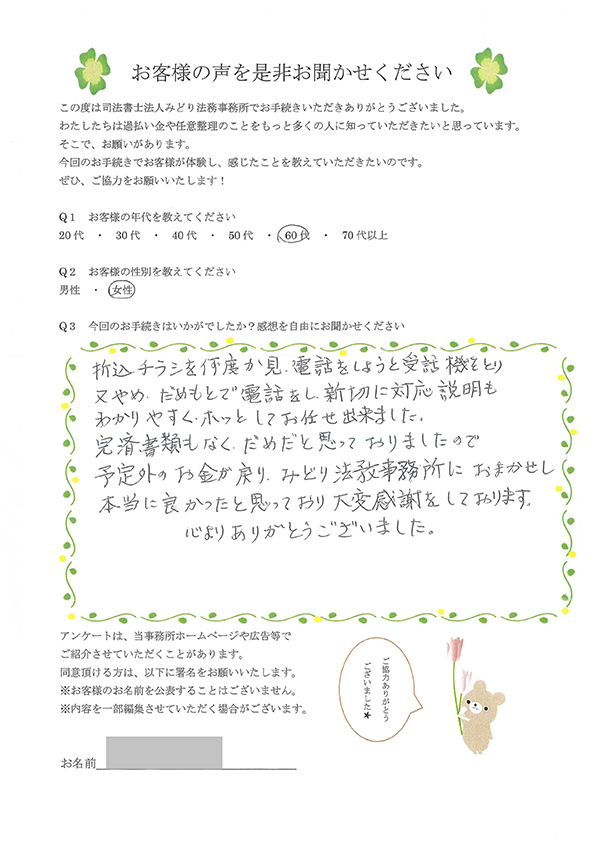 お客様の声を是非お聞かせください
この度は司法書士法人みどり法務事務所でお手続きいただきありがとうございました。
わたしたちは過払い金や任意整理のことをもっと多くの人に知っていただきたいと思っています。
そこで、お願いがあります。
今回のお手続きでお客様が体験し、感じたことを教えていただきたいのです。
ぜひ、ご協力をお願いいたします！
Q１　お客様の年代を教えてください
20代　・　30代　・　40代　・　50代　・　60代　・　70代以上
Q２　お客様の性別を教えてください
男性　・　女性
Q３　今回のお手続きはいかがでしたか？感想を自由にお聞かせください
折込チラシを何度か見、電話をしようと受話機をとり
又やめ、だめもとで電話をし、新切に対応説明も
わかりやすく、ホッとしてお任せ出来ました。
完済書類もなく、だめだと思っておりましたので
予定外のお金が戻り、みどり法務事務所におまかせし
本当に良かったと思っており大変感謝をしております。
心よりありがとうございました。
アンケートは、当事務所ホームページや広告等で
ご紹介させていただくことがあります。
同意頂ける方は、以下に署名をお願いいたします。
※お客様のお名前を公表することはございません。
※内容を一部編集させていただく場合がございます。
ご協力ありがとう
ございました★
お名前